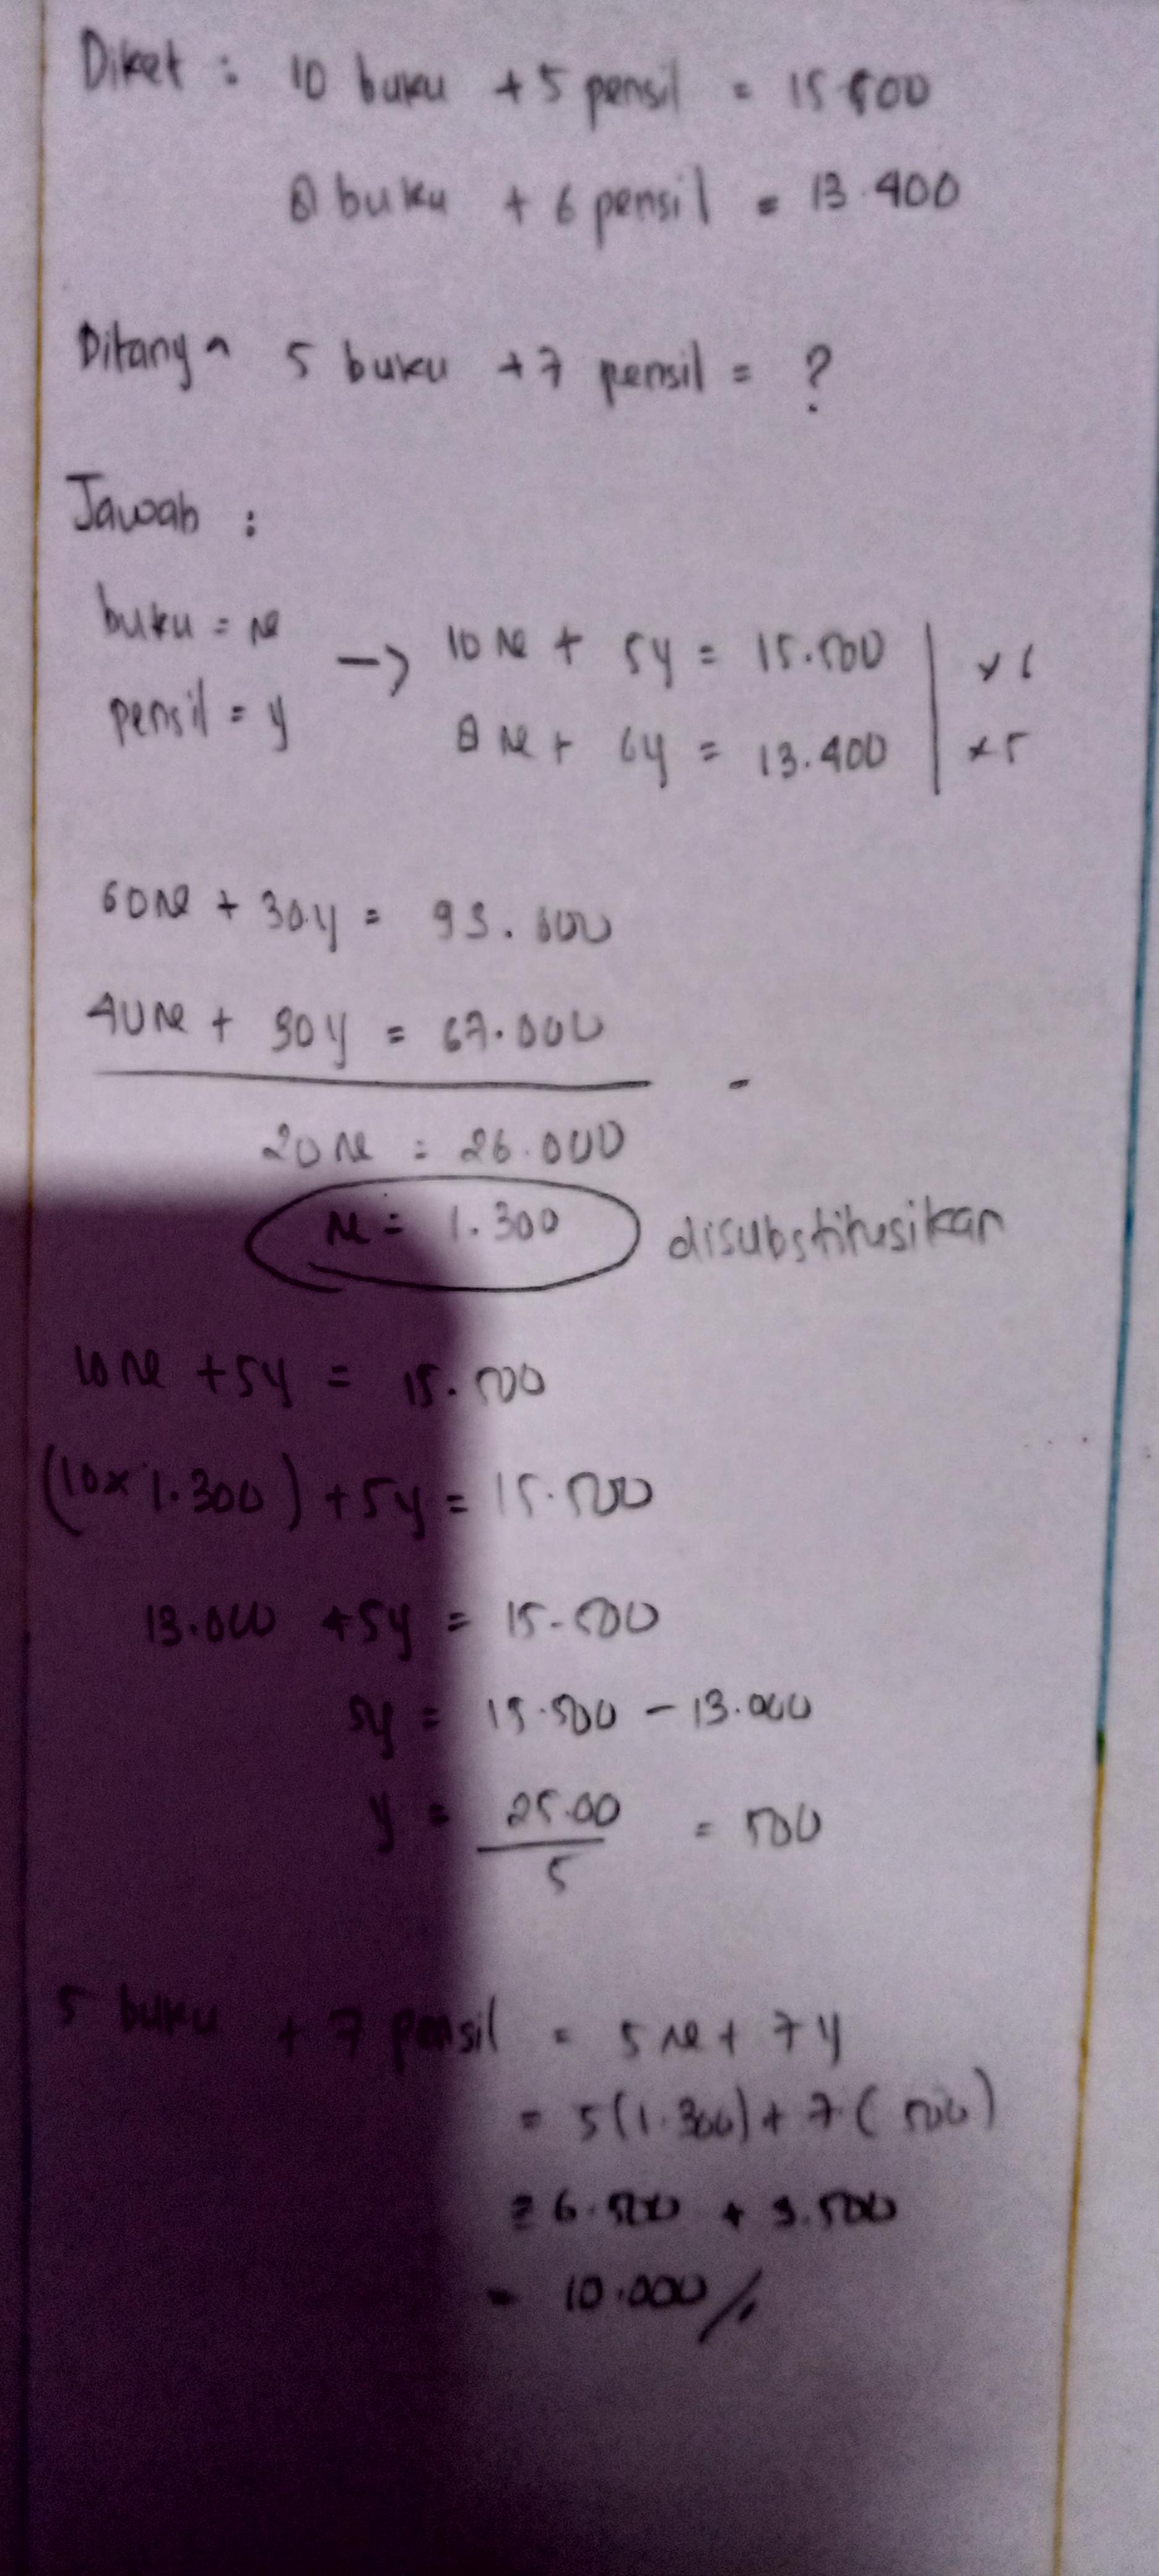 Diket : 10 buku + 5 pensil = 15.500
8 buku + 6 pensil = 13.400
Ditanya 5 buku + 7 pensil = ?
Jawab :
buku = x
pensil = y
→ 10x + 5y = 15.500 | x 6
8x + 6y = 13.400 | x 5
60x + 30y = 93.000
40x + 30y = 67.000
-
20x = 26.000
x = 1.300 disubstitusikan
10x + 5y = 15.500
(10x 1.300) + 5y = 15.500
13.000 + 5y = 15.500
5y = 15.500 - 13.000
y = 25.00 / 5 = 500
5 buku + 7 pensil = 5x + 7y
= 5(1.300) + 7(500)
= 6.500 + 3.500
= 10.000 //